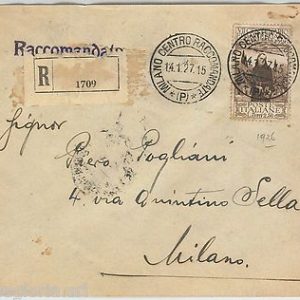 Raccomandata
R
1709
MILANO CENTRO RACCOMANDATE
14.1.27.16
*(P)*
ITALIANE
1926
Signor
Piero Pogliani
4 via Quintino Sella
Milano.